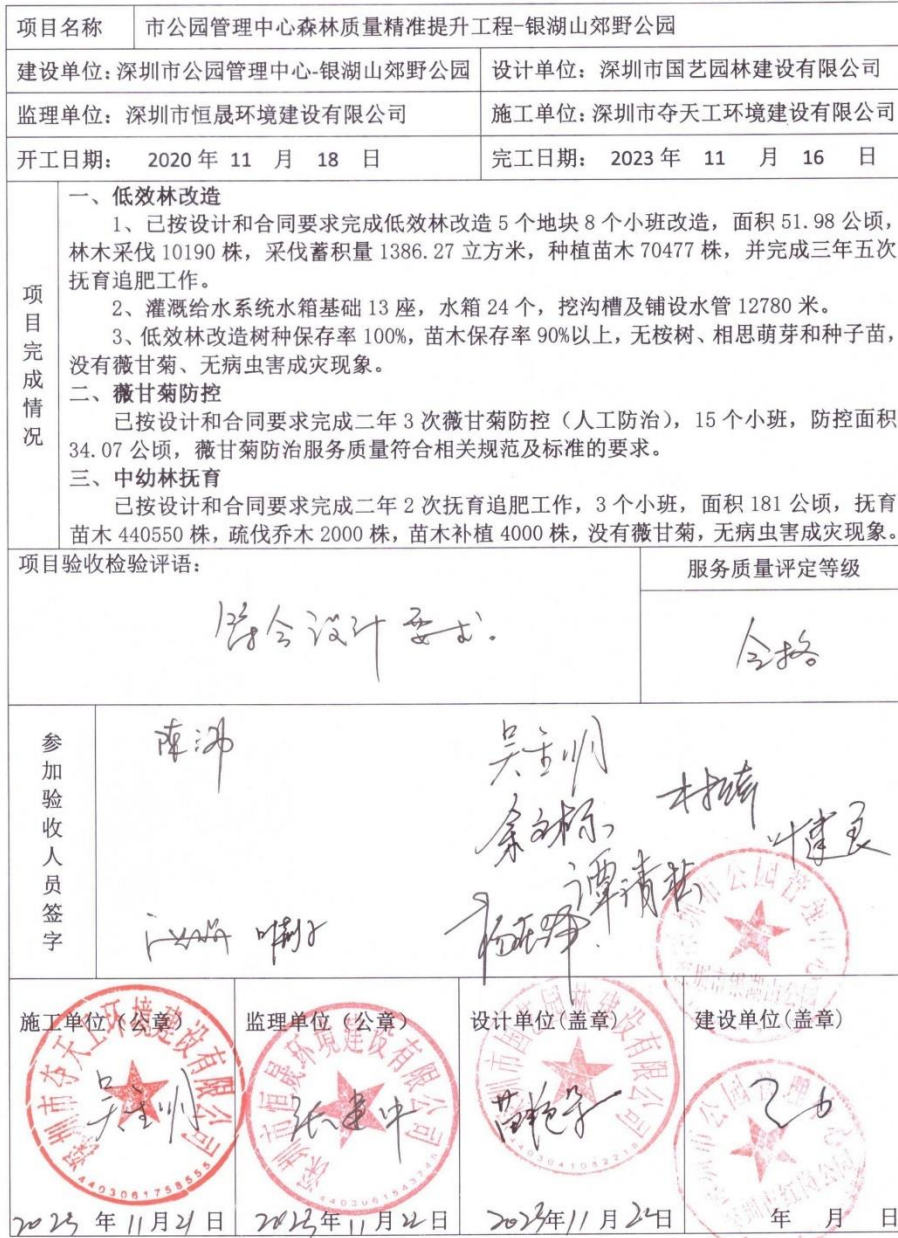 项目名称 市公园管理中心森林质量精准提升工程-银湖山郊野公园
建设单位:深圳市公园管理中心-银湖山郊野公园 设计单位：深圳市国艺园林建设有限公司
监理单位：深圳市恒晟环境建设有限公司 施工单位:深圳市夺天工环境建设有限公司
开工日期： 2020 年 11 月 18 日 完工日期： 2023 年 11 月 16 日
项目完成情况
一、低效林改造
1、已按设计和合同要求完成低效林改造 5 个地块 8 个小班改造，面积 51.98 公顷，
林木采伐 10190 株，采伐蓄积量 1386.27 立方米，种植苗木 70477 株，并完成三年五次
抚育追肥工作。
2、灌溉给水系统水箱基础 13 座，水箱 24 个，挖沟槽及铺设水管 12780 米。
3、低效林改造树种保存率 100%，苗木保存率 90%以上，无桉树、相思萌芽和种子苗，
没有薇甘菊、无病虫害成灾现象。
二、薇甘菊防控
已按设计和合同要求完成二年 3 次薇甘菊防控（人工防治），15 个小班，防控面积
34.07 公顷，薇甘菊防治服务质量符合相关规范及标准的要求。
三、中幼林抚育
已按设计和合同要求完成二年 2 次抚育追肥工作，3 个小班，面积 181 公顷，抚育
苗木 440550 株，疏伐乔木 2000 株，苗木补植 4000 株，没有薇甘菊，无病虫害成灾现象。
项目验收检验评语： 服务质量评定等级
符合设计要求。 合格
参加验收人员签字
余文标
谭清
叶建良
施工单位（公章） 监理单位（公章） 设计单位(盖章) 建设单位(盖章)
深圳市夺天工环境建设有限公司
4403061758555
深圳市恒晟环境建设有限公司
深圳市国艺园林建设有限公司
深圳市公园管理中心
张建中
2023 年 11 月 21 日 2023 年 11 月 22 日 2023 年 11 月 24 日 年 月 日